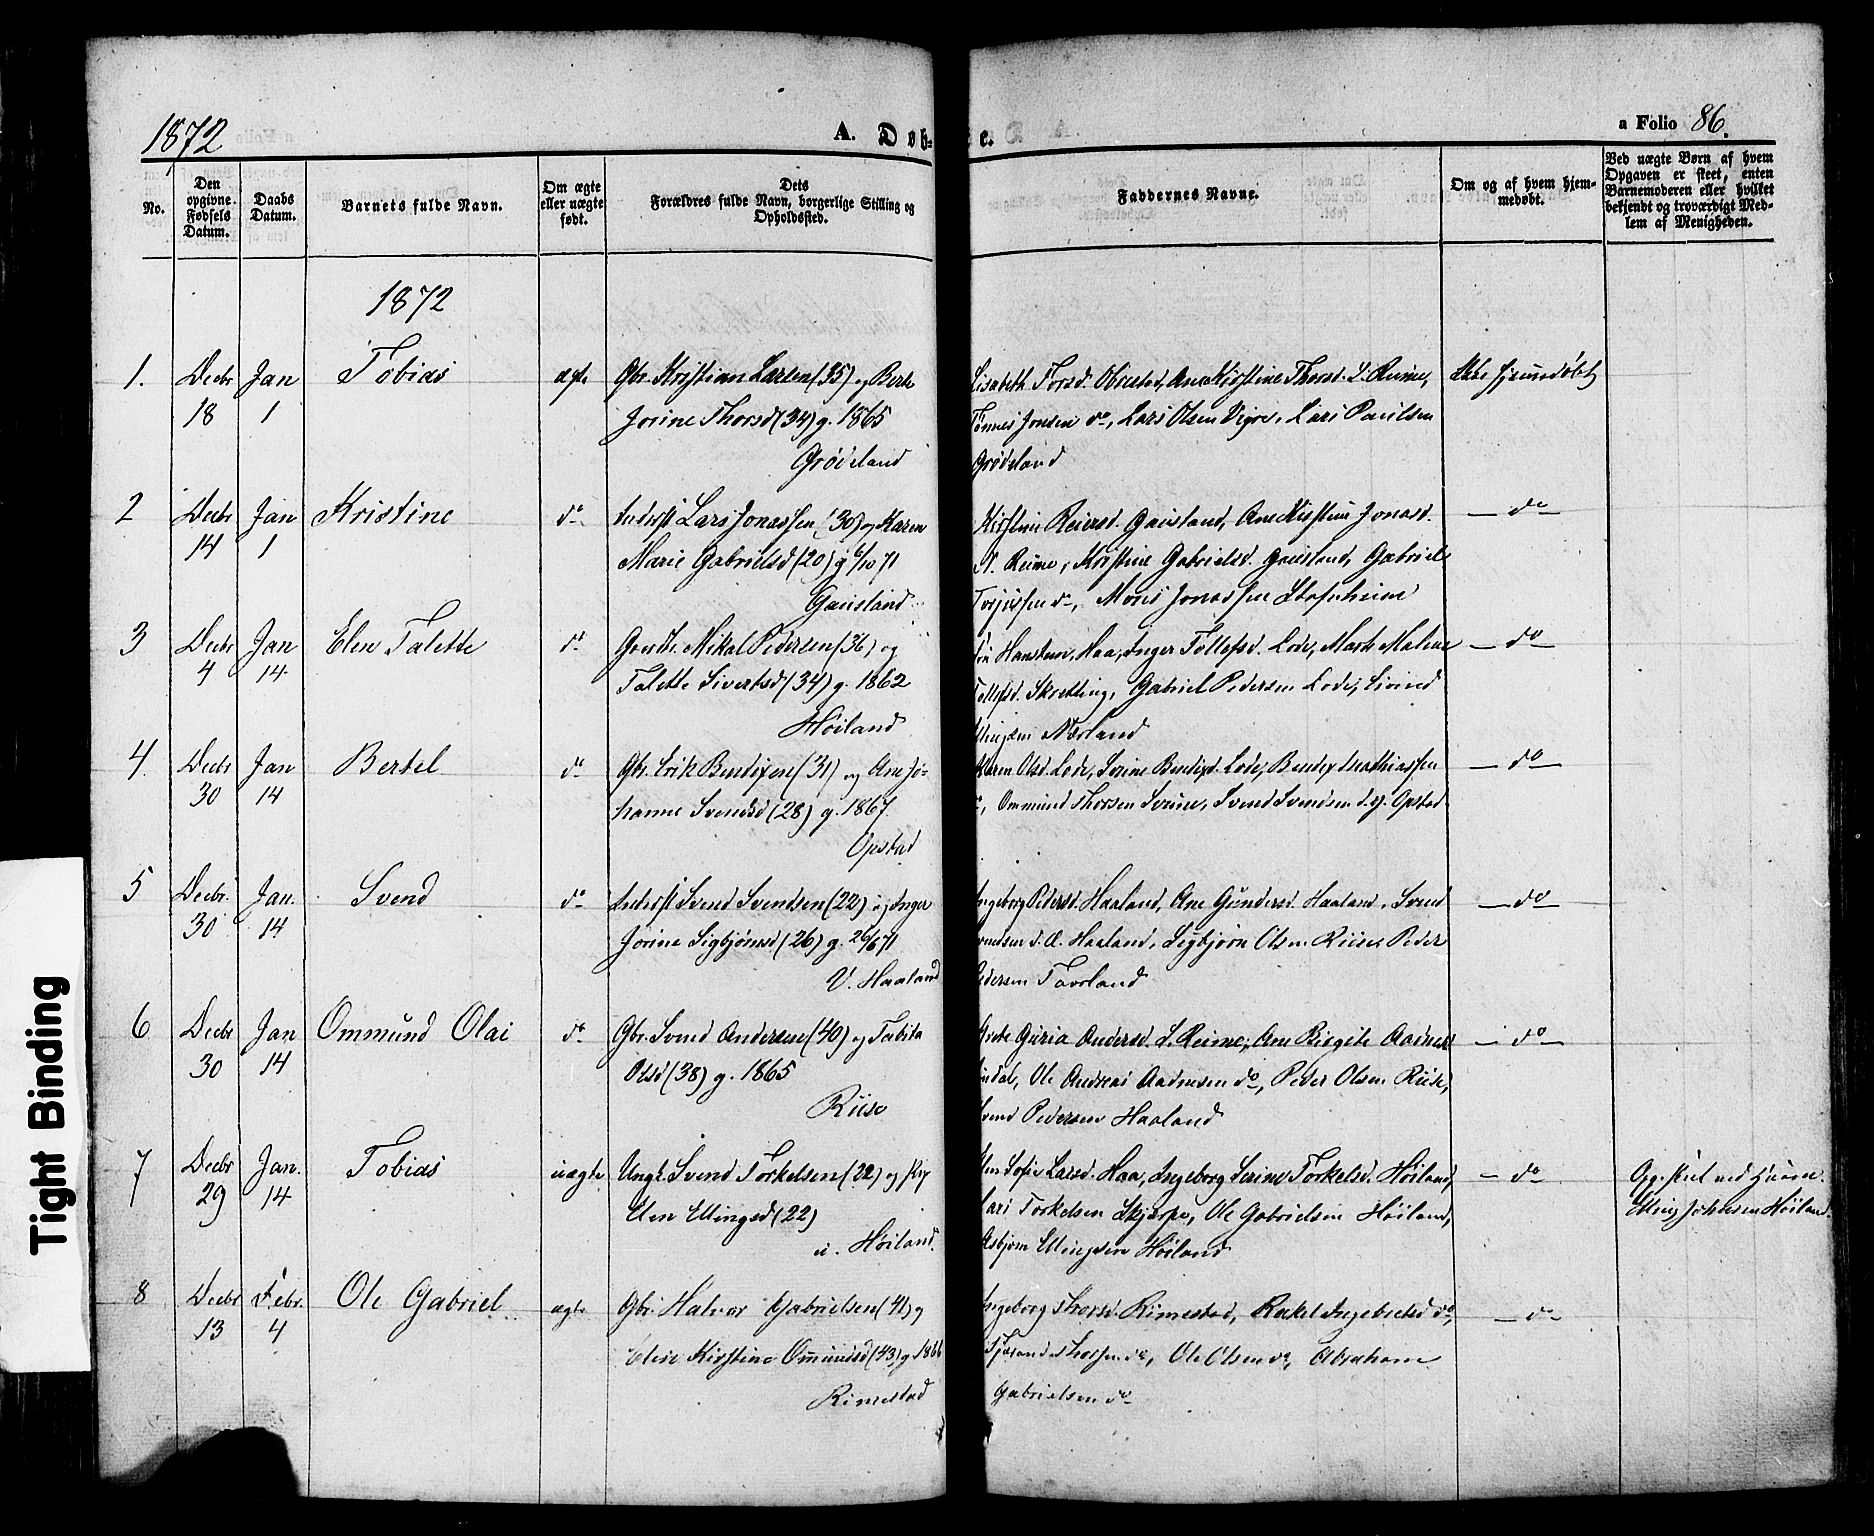 1872
A. Døb-
e.
a Folio 86.
No.
Den opgivne Fødsels Datum.
Daabs Datum.
Barnets fulde Navn.
Om ægte eller uægte født.
Dets Forældres fulde Navn, borgerlige Stilling og Opholdssted.
Faddernes Navne.
Om og af hvem hjemmedøbt.
Ved uægte Børn af hvem Opgaven er skeet, enten Barnemoderen eller hvilket bekjendt og troværdigt Medlem af Menigheden.
1872
1. Decbr 18 Jan 1 Tobias ægte
Gbr. Kristian Larsen (35) og Berte
Jorine Thorsd (34) g. 1865
Grødeland
Lisabeth Torsd. Obrestad, Ane Kirstine Thorsd. S. Reime,
Tønnes Jonsen do, Lars Olsen Vigre, Lars Paulsen
Grødeland
Ikke hjemmedøbt
2 Decbr 14 Jan 1 Kristine do
Inderst Lars Jonassen (30) og Karen
Marie Gabrielsd (20) g 6/10 71
Gausland
Kirstine Reiersd. Gausland, Ane Kirstine Jonasd.
N. Reime, Kristine Gabrielsd. Gausland, Gabriel
do, Mons Jonassen Stofnheim
do
3 Decbr 4 Jan 14 Elen Talette do
Gaardbr. Mikal Pedersen (36) og
Talette Sivertsd (34) g. 1862
Høiland
Haa, Inger Tollefsd. Lode, Marte Malene
Tollefsd. Skretting, Gabriel Pedersen Lode, Eivind
Nærland
do
4. Decbr 30 Jan 14 Bertel do
Gbr. Erik Bendixen (31) og Ane Jo-
hanne Svendsd (28) g. 1867
Opstad
Karen Olsd. Lode, Serine Bendixd. Lode, Bendix Mathiassen
do, Ommund Thorsen Svime, Svend Svendsen d. y. Opstad
do
5 Decbr. 30 Jan. 14 Svend do
Inderst Svend Svendsen (22) og Inger
Jorine Sigbjørnsd (26) g. 26/6 71
V. Haaland
Ingeborg Pedersd. Haaland, Ane Gundersd. Haaland, Svend
Svendsen d. Æ. Haaland, Sigbjørn Olsen Riise, Peder
Pedersen Tavrland
do
6 Decbr 30 Jan 14 Ommund Olai do
Gbr. Svend Andersen (40) og Tabita
Olsd (38) g. 1865
Riise
Guria Andersd. S. Reime, Ane Birgite Aadnesd
Ole Andreas Aadnesen do, Peder Olsen Riise,
Svend Pedersen Haaland
do
7 Decbr 29 Jan. 14 Tobias uægte
Ungk. Svend Torkelsen (22) og Pige
Elen Ellingsd (22)
u. Høiland
Elen Sofie Larsd. Haa, Ingeborg Serine Torkelsd. Høiland,
Lars Torkelsen Skjærpe, Ole Gabrielsen Høiland,
Asbjørn Ellingsen Høiland
do
Opg. skeet ved Gaardm.
Elling Johnsen Høiland.
8 Decbr 13 Febr. 4 Ole Gabriel ægte
Gbr. Halvor Gabrielsen (41) og
Elise Kirstine Ommundsd (43) g. 1866
Rimestad
Ingeborg Thorsd. Rimestad, Rakel Ingebretsd do,
Thorsen do, Ole Olsen do, Abraham
Gabrielsen do
do
Tight Binding